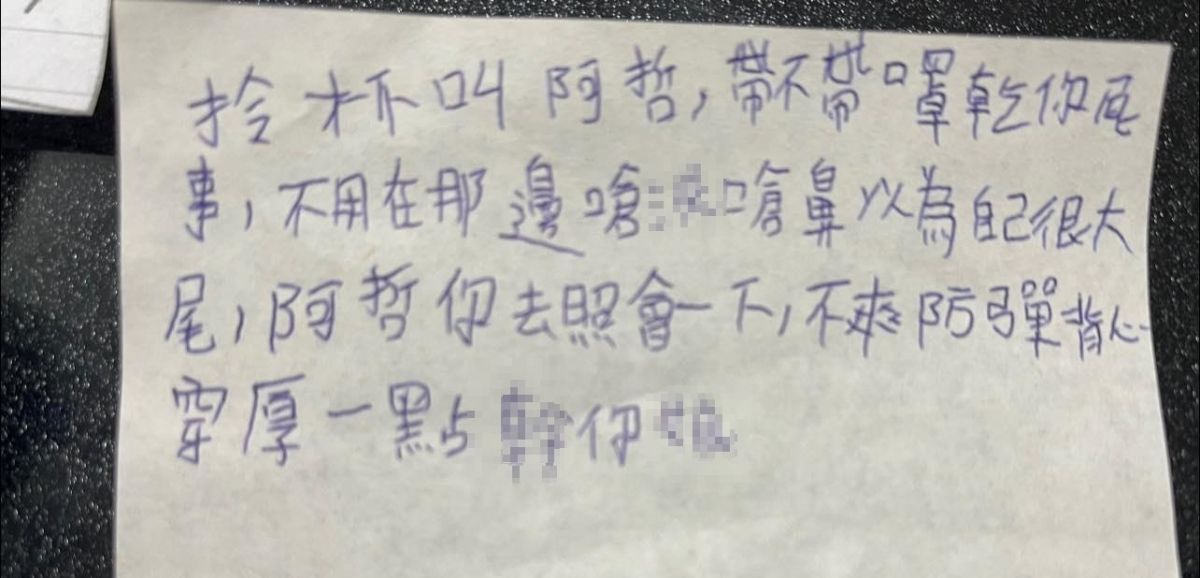 拎杯叫阿哲,帶不帶口罩乾你屁
事,不用在那邊嗆 嗆鼻以為自己很大
尾,阿哲你去照會一下,不爽防彈背心
穿厚一點 你